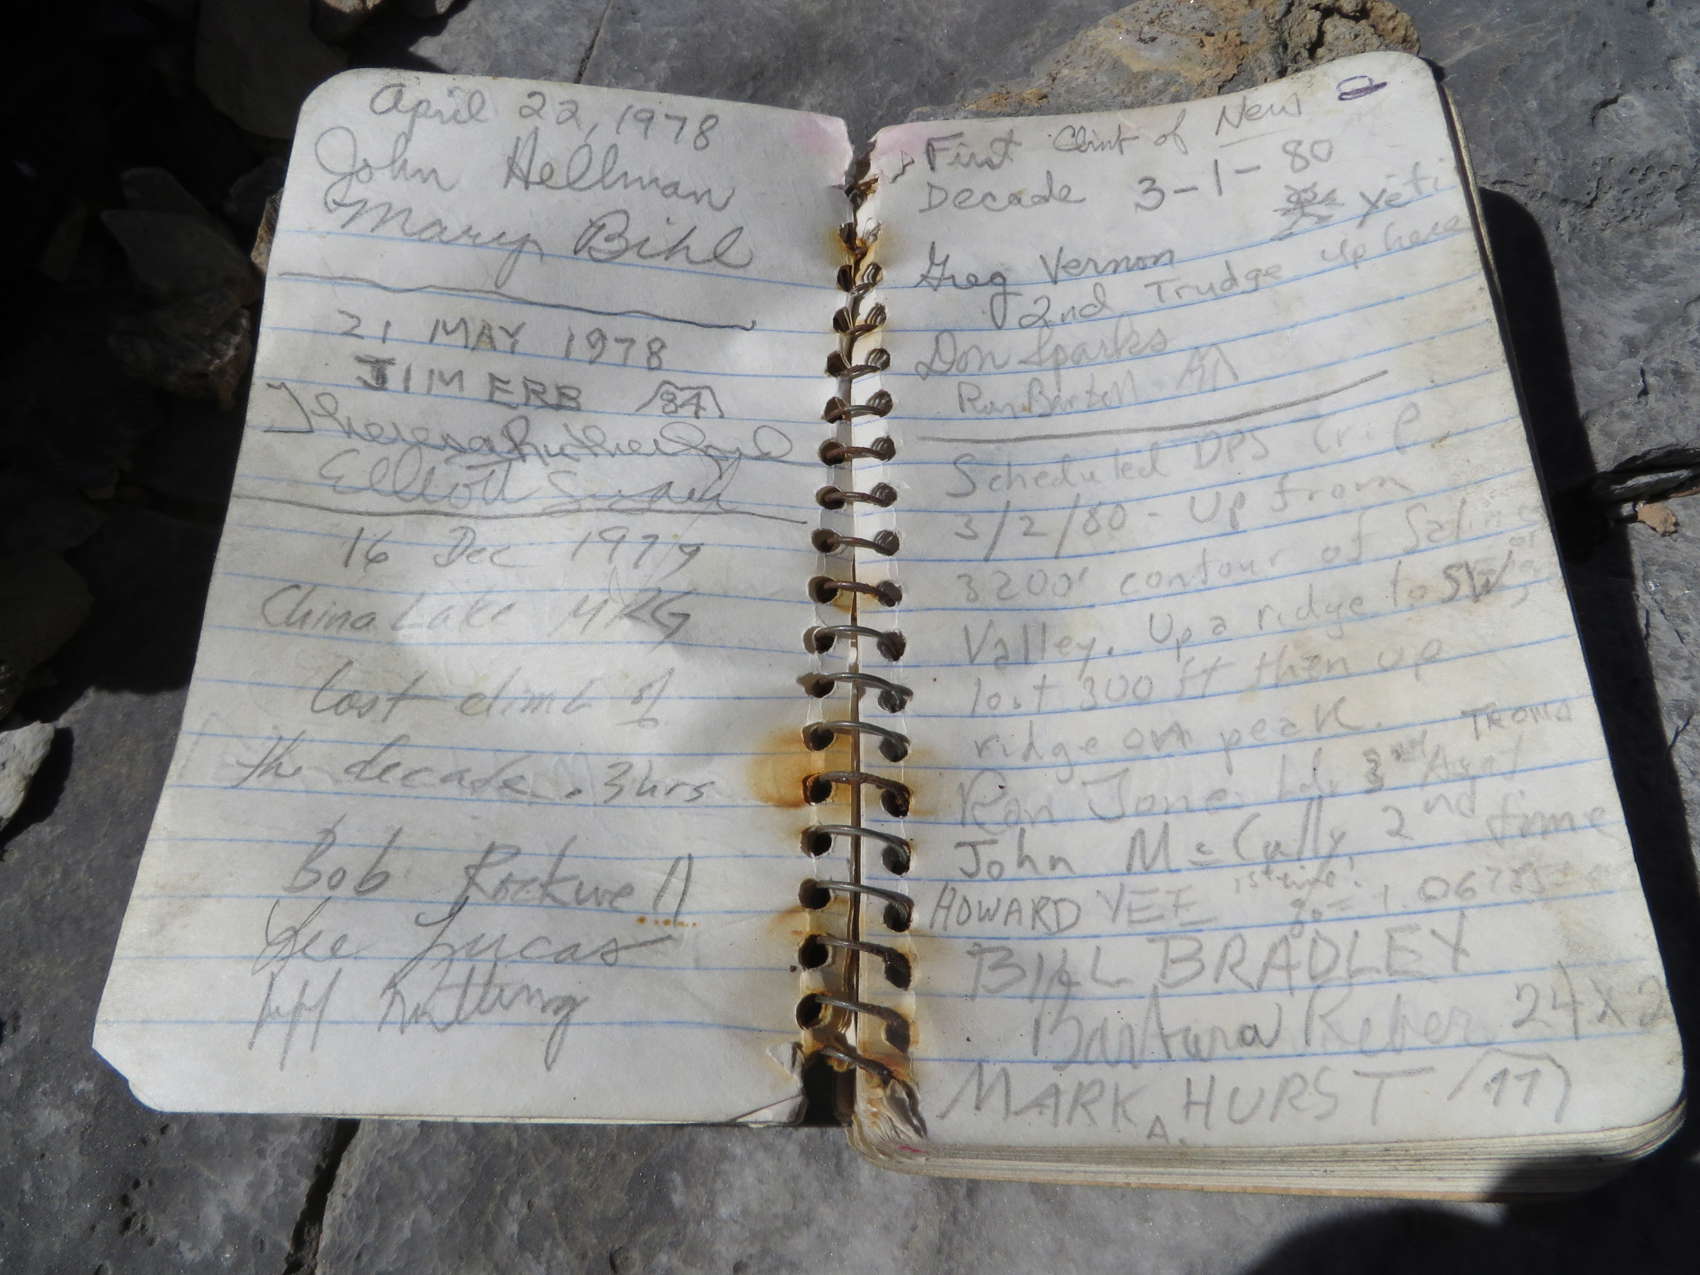 April 22, 1978
John Hellman
Mary Bihl
21 MAY 1978
JIM ERB 34
Theresa Rutherford
Elliott
16 Dec 1979
China Lake MRG
Last climb of
the decade. 3 hrs
Bob Rockwell
Lee Lucas
First Climb of New
Decade 3-1-80
yeti
Greg Vernon
2nd Trudge up here
Don Sparks
Ron Bartell
Scheduled DPS trip
3/2/80 - Up from
3200' contour of Saline
Valley. Up a ridge to SW
lost 300 ft then up
ridge on peak.
Ron Jones Ldr
John McCully, 2nd time
HOWARD YEE 1st time!
BILL BRADLEY
Barbara Reber 24x2
MARK A. HURST 77